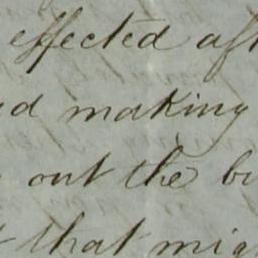 effected aft
d making
out the bu
that mig